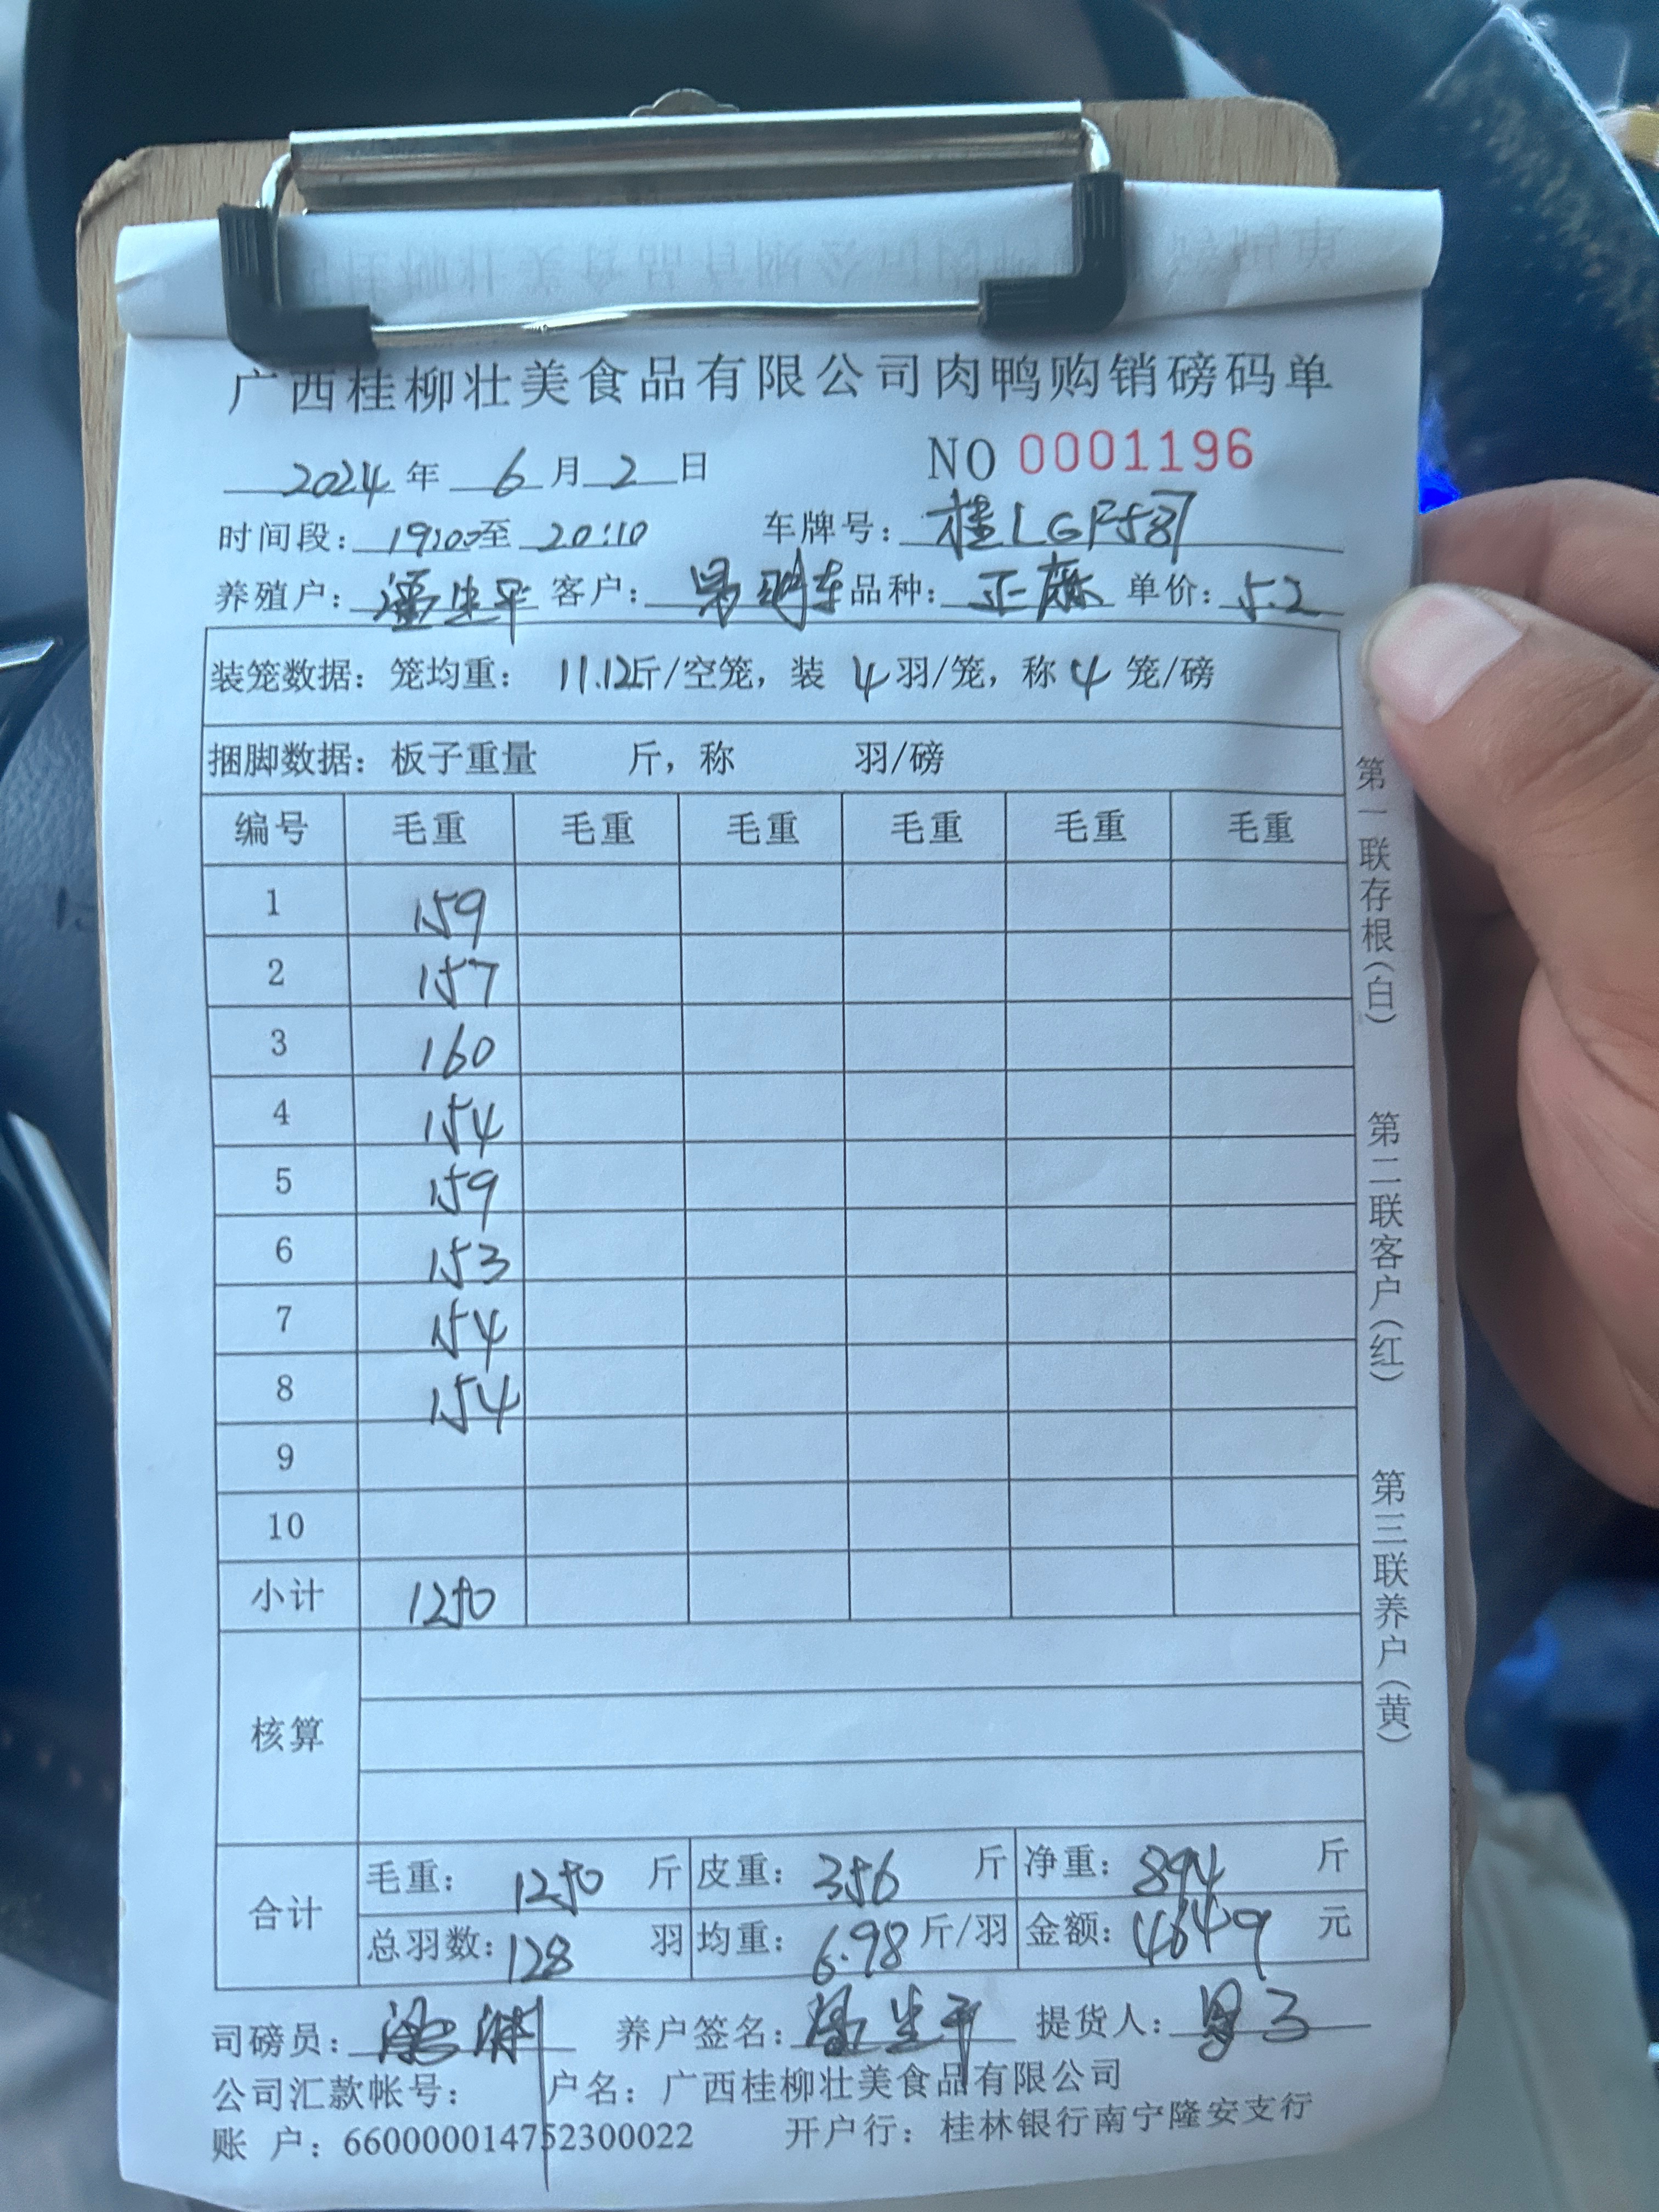 广西桂柳壮美食品有限公司肉鸭购销磅码单
2024 年 6 月 2 日 NO 0001196
时间段: 19:00 至 20:10 车牌号: 桂LGF587
养殖户: 潘生平 客户: 明车 品种: 正麻 单价: 5.2
装笼数据: 笼均重: 11.12斤/空笼, 装 4 羽/笼, 称 4 笼/磅
捆脚数据: 板子重量 斤, 称 羽/磅
编号 毛重 毛重 毛重 毛重 毛重 毛重
1 159
2 157
3 160
4 154
5 159
6 153
7 154
8 154
9
10
小计 1250
核算
合计
毛重: 1250 斤 皮重: 356 斤 净重: 894 斤
总羽数: 128 羽 均重: 6.98 斤/羽 金额: 4649 元
司磅员: 养户签名: 潘生平 提货人:
公司汇款帐号: 户名: 广西桂柳壮美食品有限公司
账 户: 660000014752300022 开户行: 桂林银行南宁隆安支行
第一联存根(白)
第二联客户(红)
第三联养户(黄)